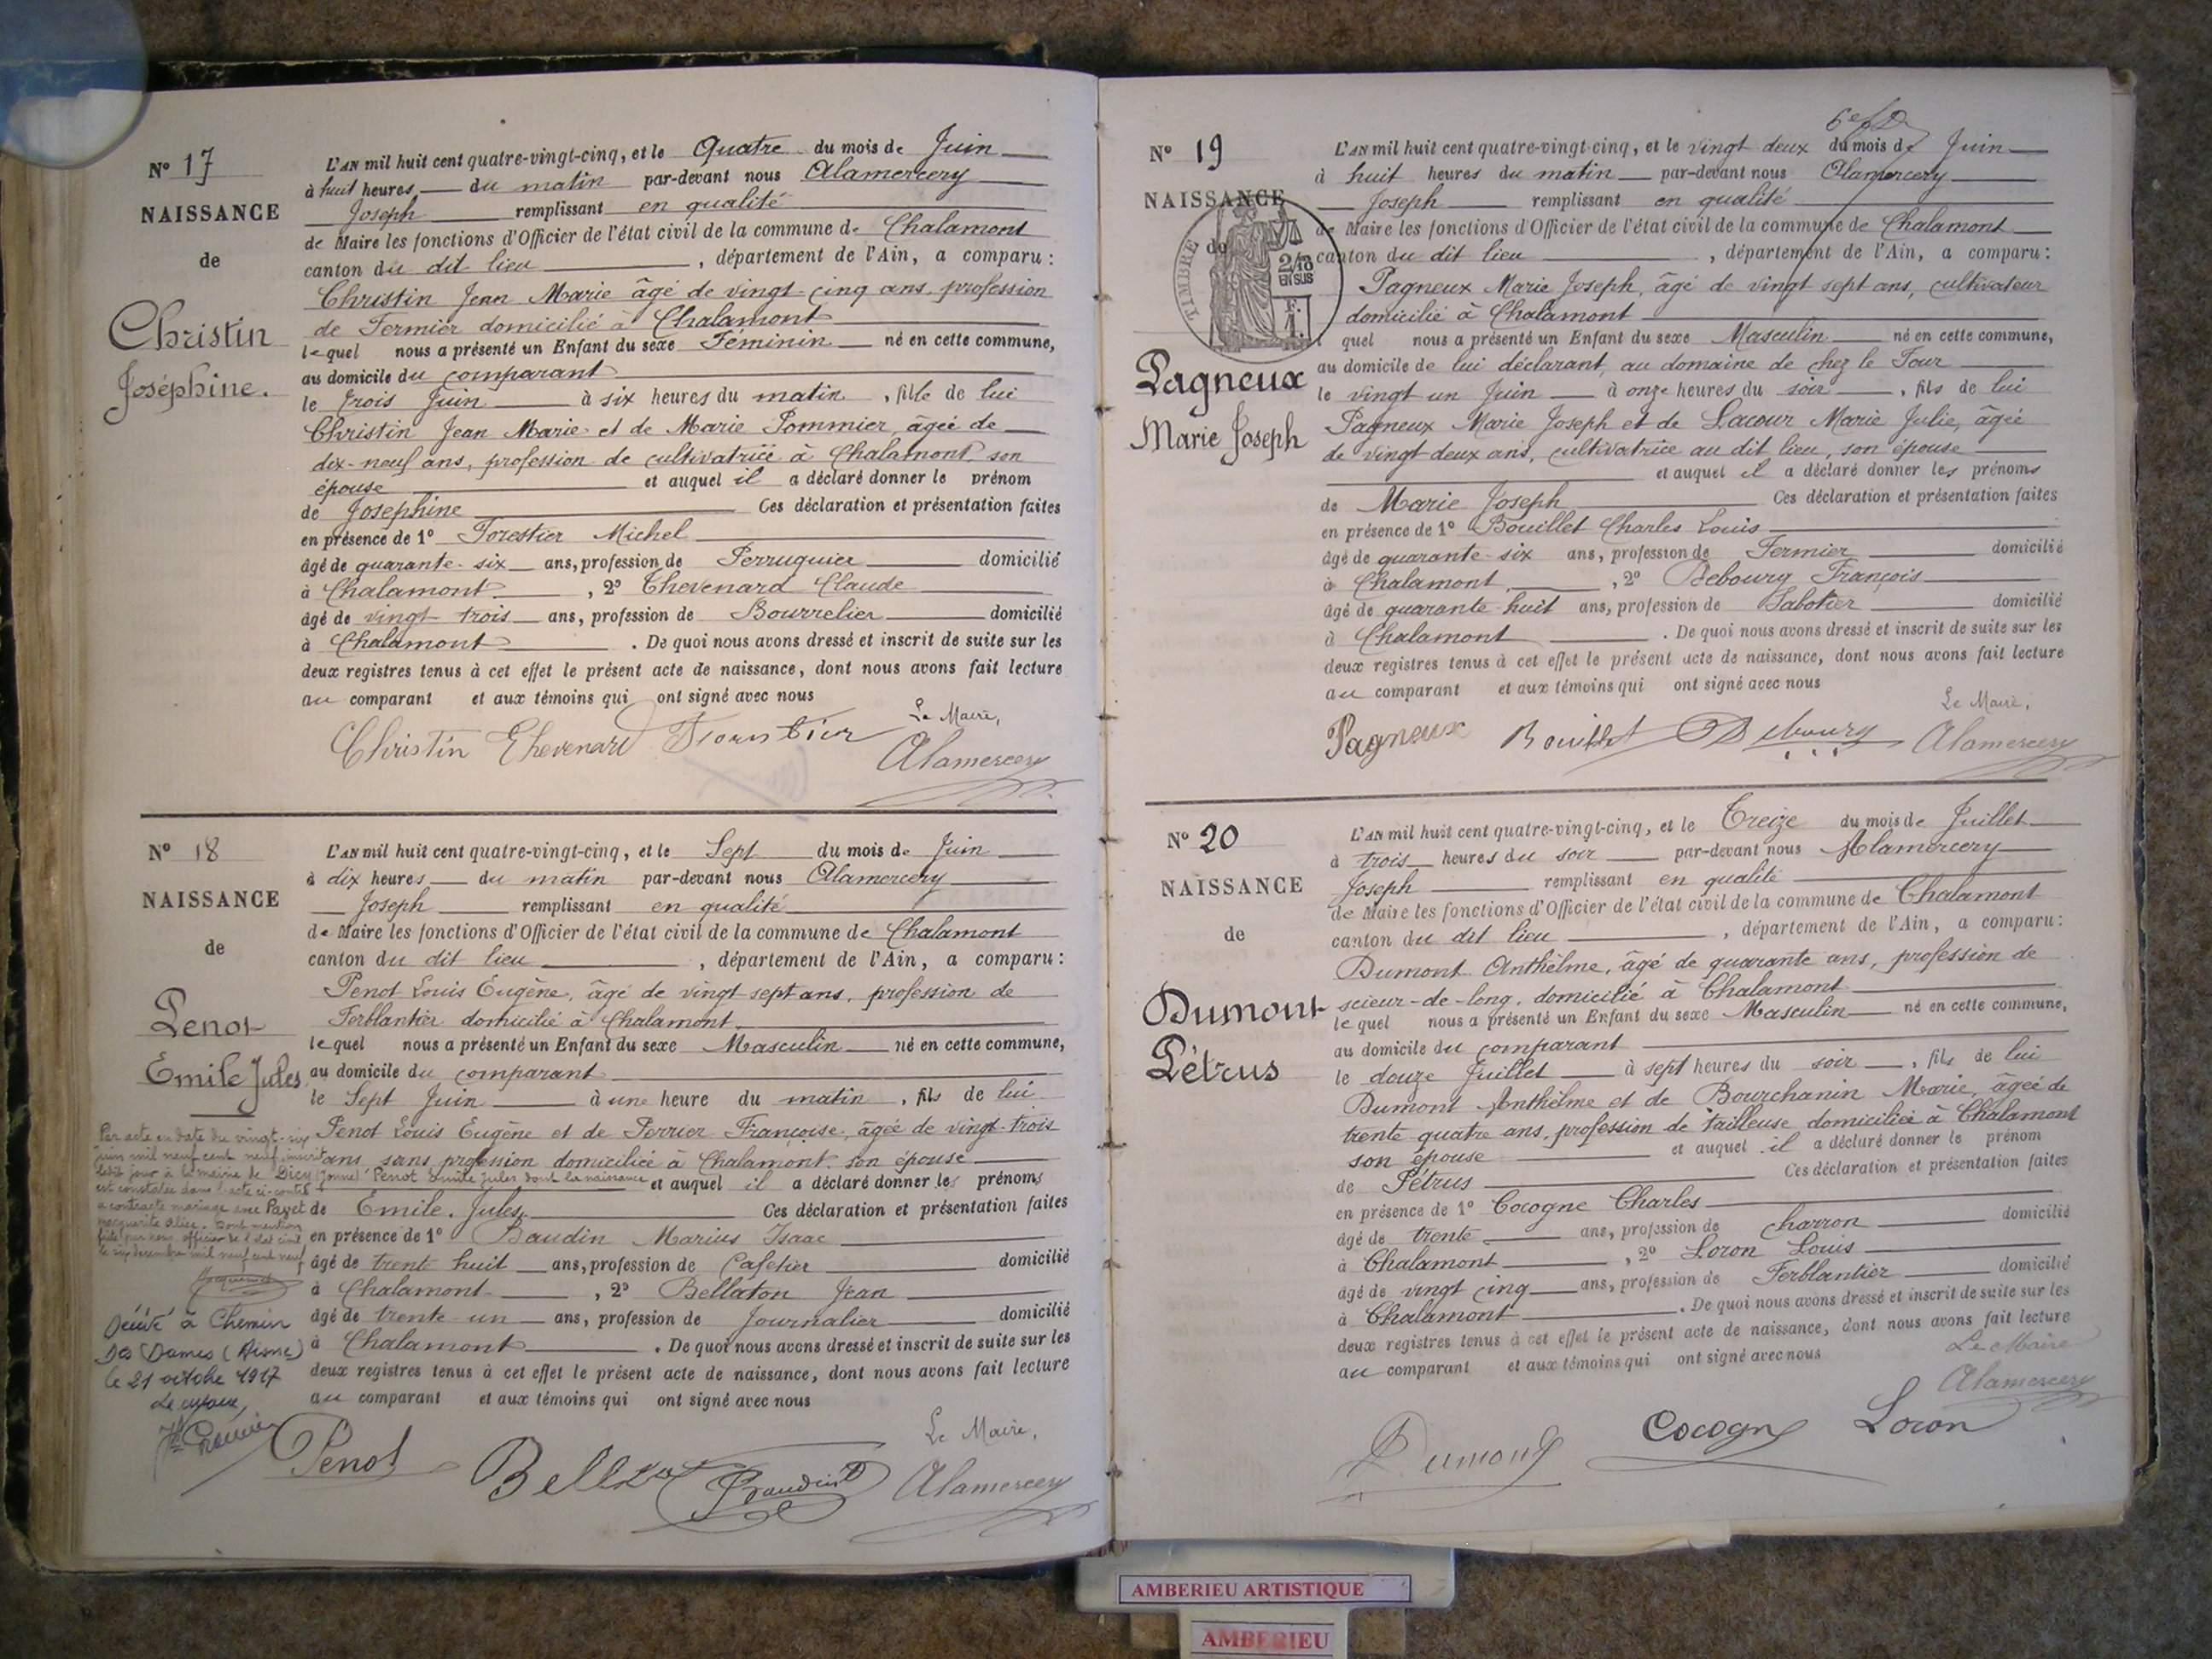 N° 17
NAISSANCE
de
Christin
Joséphine.
L'AN mil huit cent quatre-vingt-cinq, et le Quatre du mois de Juin
à huit heures, du matin par-devant nous Alamercery
Joseph remplissant en qualité
de Maire les fonctions d'Officier de l'état civil de la commune de Chalamont
canton du dit lieu, département de l'Ain, a comparu :
Christin Jean Marie âgé de vingt cinq ans, profession
de Fermier domicilié à Chalamont
lequel nous a présenté un Enfant du sexe Féminin né en cette commune,
au domicile du comparant
le trois Juin à six heures du matin, fille de lui
Christin Jean Marie et de Marie Pommier, âgée de
dix-neuf ans, profession de cultivatrice à Chalamont, son
épouse et auquel il a déclaré donner le prénom
de Joséphine Ces déclaration et présentation faites
en présence de 1° Forestier Michel
âgé de quarante-six ans, profession de Perruquier domicilié
à Chalamont, 2° Thevenard Claude
âgé de vingt trois ans, profession de Bourrelier domicilié
à Chalamont. De quoi nous avons dressé et inscrit de suite sur les
deux registres tenus à cet effet le présent acte de naissance, dont nous avons fait lecture
au comparant et aux témoins qui ont signé avec nous
Le Maire,
Christin Thevenard Forestier Alamercery
N° 18
NAISSANCE
de
Penot
Emile Jules
L'AN mil huit cent quatre-vingt-cinq, et le Sept du mois de Juin
à dix heures du matin par-devant nous Alamercery
Joseph remplissant en qualité
de Maire les fonctions d'Officier de l'état civil de la commune de Chalamont
canton du dit lieu, département de l'Ain, a comparu :
Penot Louis Eugène, âgé de vingt sept ans, profession de
Ferblantier domicilié à Chalamont
lequel nous a présenté un Enfant du sexe Masculin né en cette commune,
au domicile du comparant
le Sept Juin à une heure du matin, fils de lui
Penot Louis Eugène et de Perrier Françoise, âgée de vingt-trois
ans sans profession domiciliée à Chalamont, son épouse
et auquel il a déclaré donner les prénoms
de Emile. Jules. Ces déclaration et présentation faites
en présence de 1° Baudin Marius Isaac
âgé de trente huit ans, profession de Cafetier domicilié
à Chalamont, 2° Bellaton Jean
âgé de trente-un ans, profession de Journalier domicilié
à Chalamont. De quoi nous avons dressé et inscrit de suite sur les
deux registres tenus à cet effet le présent acte de naissance, dont nous avons fait lecture
au comparant et aux témoins qui ont signé avec nous
Par acte en date du vingt-six
juin mil neuf cent neuf, inscrit
ledit jour à la mairie de Dicy (Yonne) Penot Emile Jules dont la naissance
est constatée dans l'acte ci-contre
a contracté mariage avec Payet
Marguerite Alice. Dont mention
faite par nous officier de l'état civil
le six décembre mil neuf cent neuf
Décédé à Chemin
Des Dames (Aisne)
le 21 octobre 1917
Le Maire,
Penot Baudin Alamercery
N° 19
NAISSANCE
de
TIMBRE
2/10
EN SUS
F.
1.
Pagneux
Marie Joseph
L'AN mil huit cent quatre-vingt-cinq, et le vingt deux du mois de Juin
à huit heures du matin par-devant nous Alamercery
Joseph remplissant en qualité
de Maire les fonctions d'Officier de l'état civil de la commune de Chalamont
canton du dit lieu, département de l'Ain, a comparu :
Pagneux Marie Joseph, âgé de vingt sept ans, cultivateur
domicilié à Chalamont
quel nous a présenté un Enfant du sexe Masculin né en cette commune,
au domicile de lui déclarant, au domaine de chez le Tour
le vingt un Juin à onze heures du soir, fils de lui
Pagneux Marie Joseph et de Lacour Marie Julie, âgée
de vingt-deux ans, cultivatrice au dit lieu, son épouse
et auquel il a déclaré donner les prénoms
de Marie Joseph Ces déclaration et présentation faites
en présence de 1° Bouillet Charles Louis
âgé de quarante-six ans, profession de Fermier domicilié
à Chalamont, 2° Debourg François
âgé de quarante-huit ans, profession de Sabotier domicilié
à Chalamont. De quoi nous avons dressé et inscrit de suite sur les
deux registres tenus à cet effet le présent acte de naissance, dont nous avons fait lecture
au comparant et aux témoins qui ont signé avec nous
Le Maire,
Pagneux Bouillet Debourg Alamercery
N° 20
NAISSANCE
de
Dumont
Pétrus
L'AN mil huit cent quatre-vingt-cinq, et le Treize du mois de Juillet
à trois heures du soir par-devant nous Alamercery
Joseph remplissant en qualité
de Maire les fonctions d'Officier de l'état civil de la commune de Chalamont
canton du dit lieu, département de l'Ain, a comparu :
Dumont Anthelme, âgé de quarante ans, profession de
scieur-de-long, domicilié à Chalamont
lequel nous a présenté un Enfant du sexe Masculin né en cette commune,
au domicile du comparant
le douze Juillet à sept heures du soir, fils de lui
Dumont Anthelme et de Bourchanin Marie, âgée de
trente quatre ans, profession de tailleuse domiciliée à Chalamont
son épouse et auquel il a déclaré donner le prénom
de Pétrus Ces déclaration et présentation faites
en présence de 1° Cocogne Charles
âgé de trente ans, profession de charron domicilié
à Chalamont, 2° Loron Louis
âgé de vingt cinq ans, profession de Ferblantier domicilié
à Chalamont. De quoi nous avons dressé et inscrit de suite sur les
deux registres tenus à cet effet le présent acte de naissance, dont nous avons fait lecture
au comparant et aux témoins qui ont signé avec nous
Le Maire
Alamercery
Dumont Cocogne Loron
AMBERIEU ARTISTIQUE
AMBERIEU